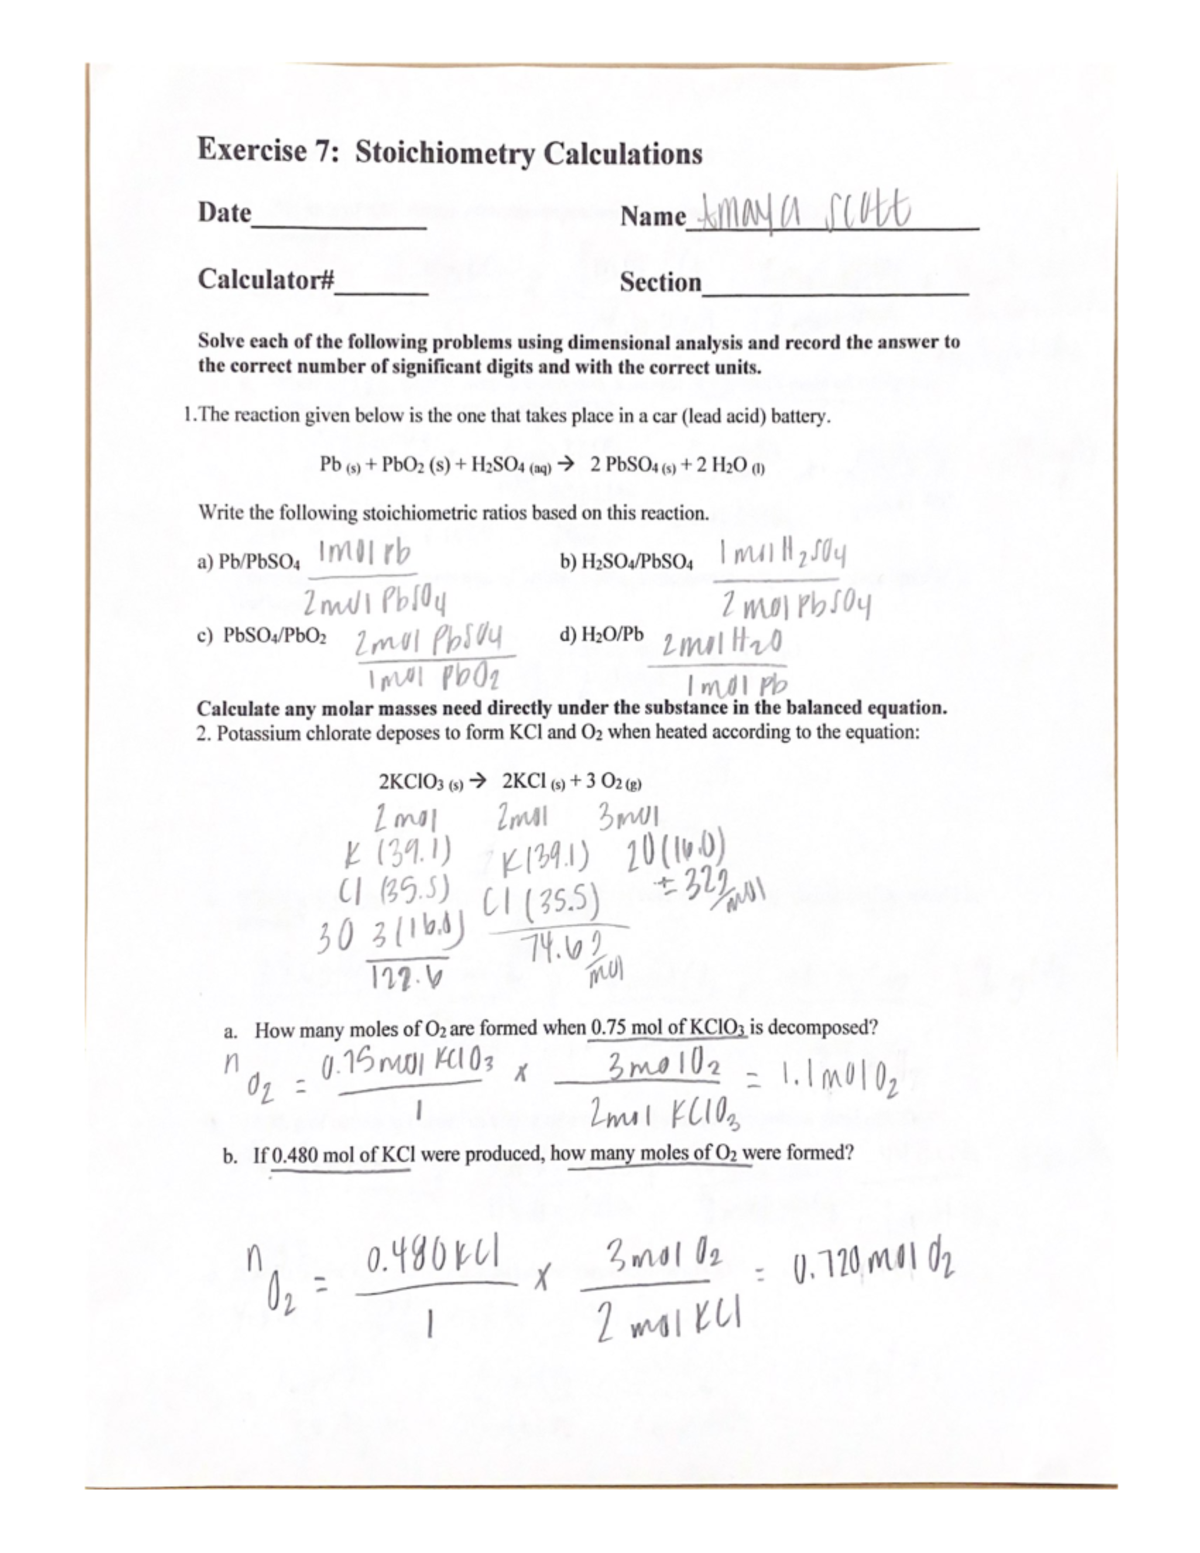 Exercise 7: Stoichiometry Calculations
Date____________ Name Amaya Scott
Calculator#______ Section__________________
Solve each of the following problems using dimensional analysis and record the answer to
the correct number of significant digits and with the correct units.
1.The reaction given below is the one that takes place in a car (lead acid) battery.
Pb (s) + PbO2 (s) + H2SO4 (aq) → 2 PbSO4 (s) + 2 H2O (l)
Write the following stoichiometric ratios based on this reaction.
a) Pb/PbSO4 1 mol Pb b) H2SO4/PbSO4 1 mol H2SO4
2 mol PbSO4 2 mol PbSO4
c) PbSO4/PbO2 2 mol PbSO4 d) H2O/Pb 2 mol H2O
1 mol PbO2 1 mol Pb
Calculate any molar masses need directly under the substance in the balanced equation.
2. Potassium chlorate deposes to form KCl and O2 when heated according to the equation:
2KClO3 (s) → 2KCl (s) + 3 O2 (g)
2 mol 2 mol 3 mol
K (39.1) K(39.1) 2O(16.0)
Cl (35.5) Cl (35.5) = 32 g/mol
3O 3(16.0) 74.6 g/mol
122.6
a. How many moles of O2 are formed when 0.75 mol of KClO3 is decomposed?
n O2 = 0.75 mol KClO3 x 3 mol O2 = 1.1 mol O2
1 2 mol KClO3
b. If 0.480 mol of KCl were produced, how many moles of O2 were formed?
n O2 = 0.480 KCl x 3 mol O2 = 0.720 mol O2
1 2 mol KCl